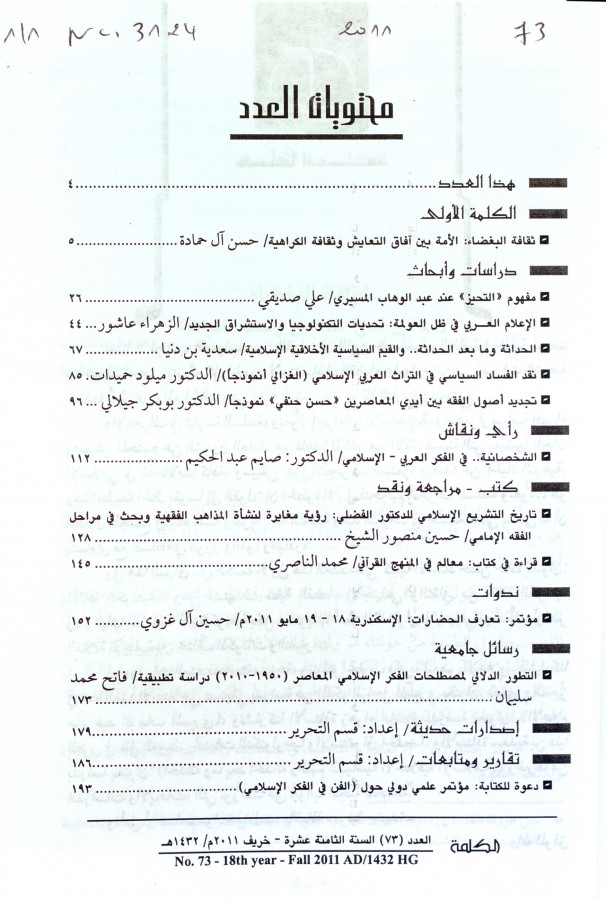 1/1 Nc. 3124 2011 73
محتويات العدد
هذا العدد..........٤
الكلمة الأولى
ثقافة البغضاء: الأمة بين آفاق التعايش وثقافة الكراهية/ حسن آل حمادة..........٥
دراسات وأبحاث
مفهوم «التحيز» عند عبد الوهاب المسيري/ علي صديقي..........٢٦
الإعلام العـــربي في ظل العولمة: تحديات التكنولوجيا والاستشراق الجديد/ الزهراء عاشور...٤٤
الحداثة وما بعد الحداثة.. والقيم السياسية الأخلاقية الإسلامية/ سعدية بن دنيا..........٦٧
نقد الفساد السياسي في التراث العربي الإسلامي (الغزالي أنموذجا)/ الدكتور ميلود حميدات.٨٥
تجديد أصول الفقه بين أيدي المعاصرين «حسن حنفي» نموذجا/ الدكتور بوبكر جيلالي...٩٦
رأي ونقاش
الشخصانية.. في الفكر العربي - الإسلامي/ الدكتور: صايم عبد الحكيم..........١١٢
كتب - مراجعة ونقد
تاريخ التشريع الإسلامي للدكتور الفضلي: رؤية مغايرة لنشأة المذاهب الفقهية وبحث في مراحل
الفقه الإمامي/ حسين منصور الشيخ..........١٢٨
قراءة في كتاب: معالم في المنهج القرآني/ محمد الناصري..........١٤٥
ندوات
مؤتمر: تعارف الحضارات: الإسكندرية ١٨ - ١٩ مايو ٢٠١١م/ حسين آل غزوي..........١٥٢
رسائل جامعية
التطور الدلالي لمصطلحات الفكر الإسلامي المعاصر (١٩٥٠-٢٠١٠) دراسة تطبيقية/ فاتح محمد
سليمان..........١٧٣
إصدارات حديثة/ إعداد: قسم التحرير..........١٧٩
تقارير ومتابعات/ إعداد: قسم التحرير..........١٨٦
دعوة للكتابة: مؤتمر علمي دولي حول (الفن في الفكر الإسلامي)..........١٩٣
الكلمة
العدد (٧٣) السنة الثامنة عشرة - خريف ٢٠١١م/ ١٤٣٢هـ
No. 73 - 18th year - Fall 2011 AD/1432 HG